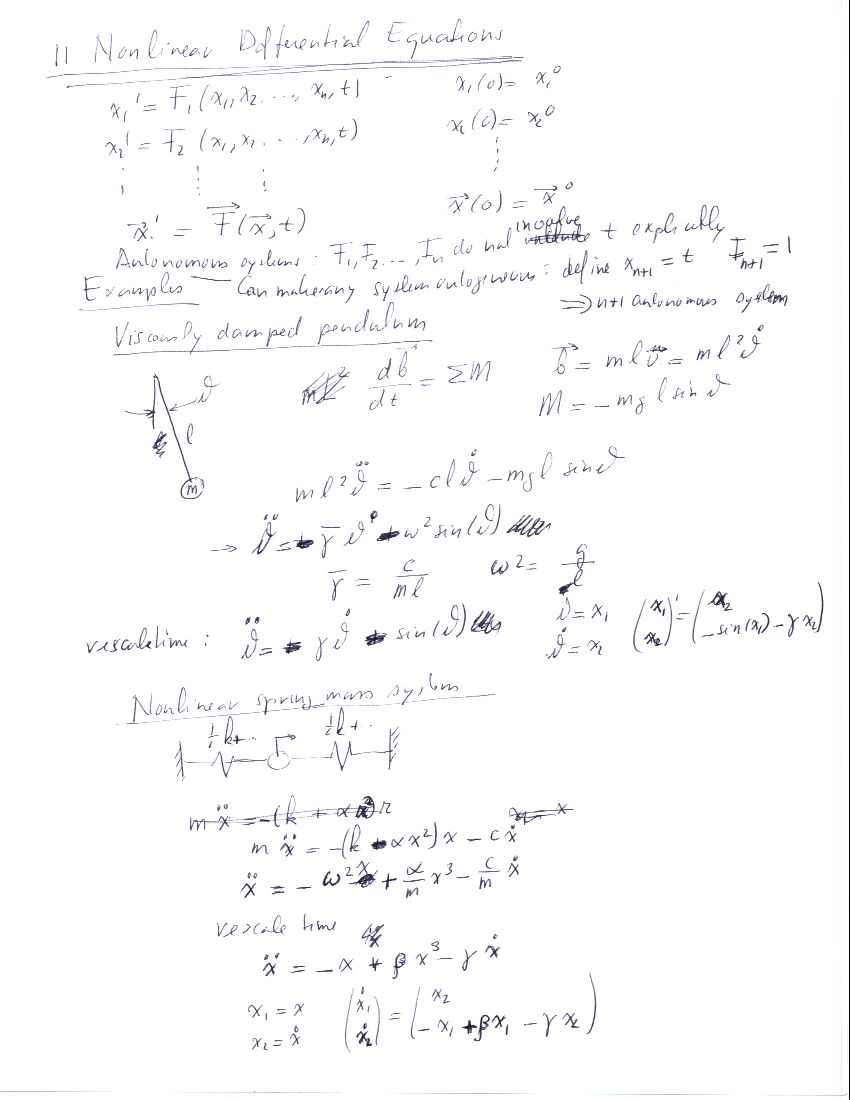 11 Nonlinear Differential Equations
x₁' = F₁(x₁,x₂....,xₙ,t) x₁(0) = x₁⁰
x₂' = F₂ (x₁,x₂....,xₙ,t) x₂(0) = x₂⁰
⋮ ⋮ ⋮ ⋮
x⃗' = F⃗(x⃗,t) x⃗(0) = x⃗⁰
Autonomous systems: F₁,F₂...,Fₙ do not involve t explicitly
Examples Can make any system autogenous: define xₙ₊₁ = t Fₙ₊₁ = 1
⇒ n+1 autonomous system
Viscously damped pendulum
ϑ l m
db⃗/dt = ΣM b⃗ = m l v⃗ = m l² ϑ̇
M = - m g l sin ϑ
m l² ϑ̈ = - c l ϑ̇ - m g l sin ϑ
→ ϑ̈ = - γ̄ ϑ̇ - ω² sin(ϑ)
γ̄ = c/ml ω² = g/l
rescale time: ϑ̈ = - γ ϑ̇ - sin(ϑ) ϑ = x₁ ϑ̇ = x₂ (x₁ x₂)' = (x₂ -sin(x₁) - γ x₂)
Nonlinear spring mass system
½k+.. ½k+..
m ẍ = -(k + α x²) x
m ẍ = -(k - αx²) x - c ẋ
ẍ = - ω² x + α/m x³ - c/m ẋ
rescale time
ẍ = - x + β x³ - γ ẋ
x₁ = x (ẋ₁ ẋ₂) = (x₂ - x₁ + βx₁ - γ x₂)
x₂ = ẋ